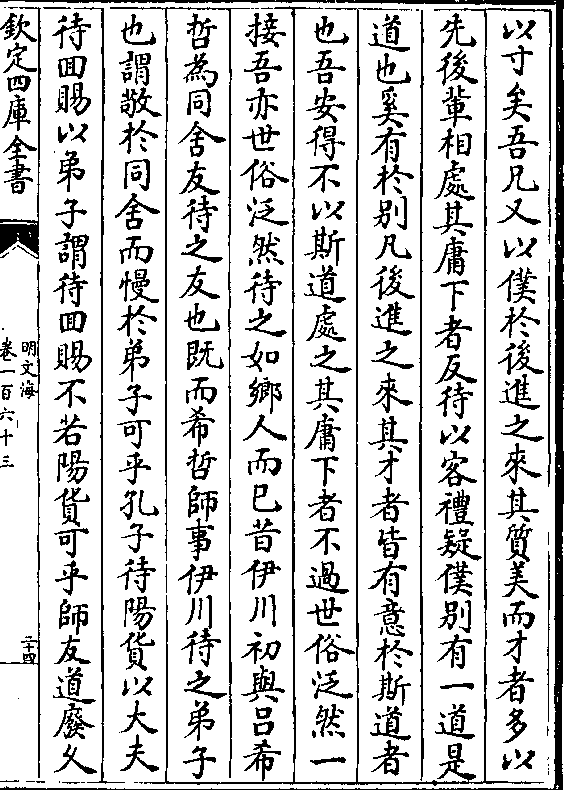 以寸矣吾兄又以僕於後進之來其質美而才者多以
先後輩相處其庸下者反待以客禮疑僕别有一道是
道也奚有於别凡後進之來其才者皆有意於斯道者
也吾安得不以斯道處之其庸下者不過世俗泛然一
接吾亦世俗泛然待之如鄉人而已昔伊川初與吕希
哲為同舍友待之友也既而希哲師事伊川待之弟子
也謂敬於同舍而慢於弟子可乎孔子待陽貨以大夫
待回賜以弟子謂待回賜不若陽貨可乎師友道廢久
欽定四庫全書
明文海
卷一百六十三
二十四